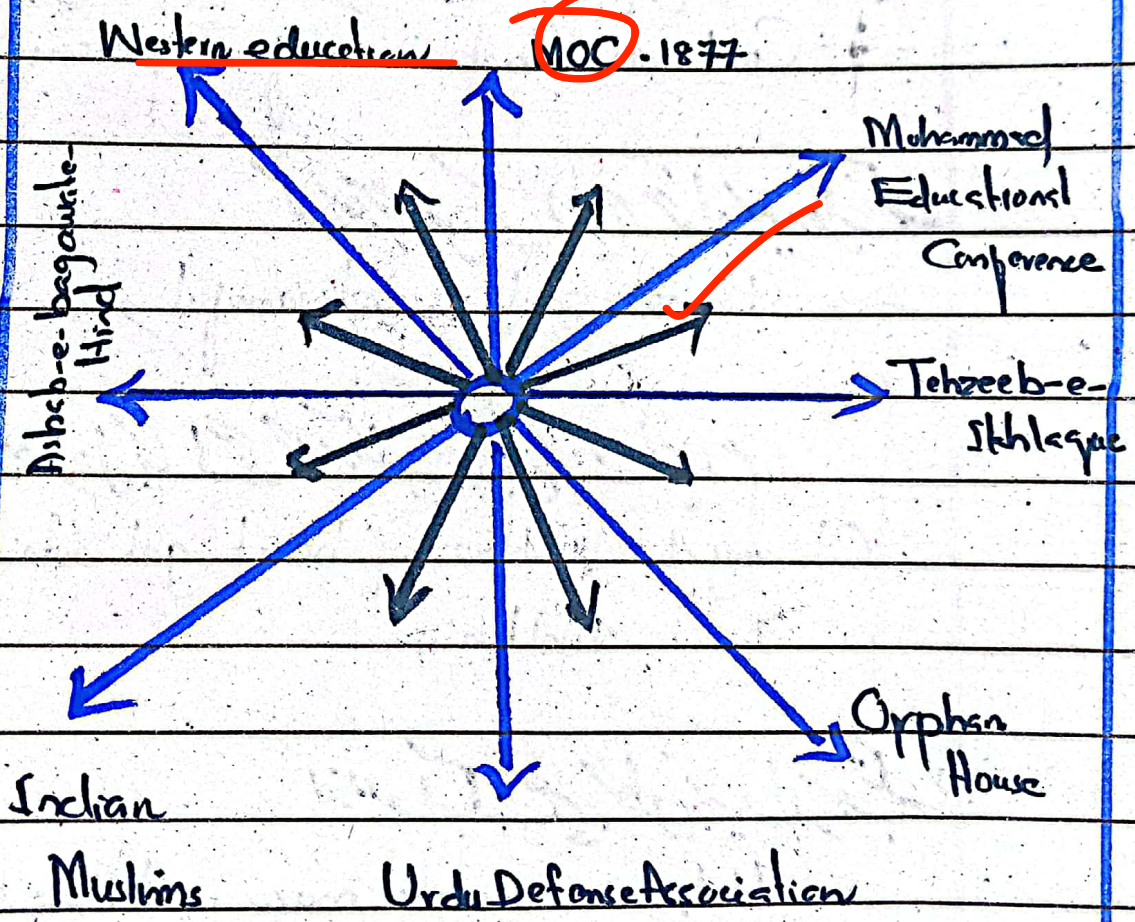 Western education
MOC. 1877
Mohammed
Educational
Conference
Asbab-e-bagawate-
Hind
Tehzeeb-e-
Ikhlaque
Orphan
House
Indian
Muslims
Urdu Defense Association